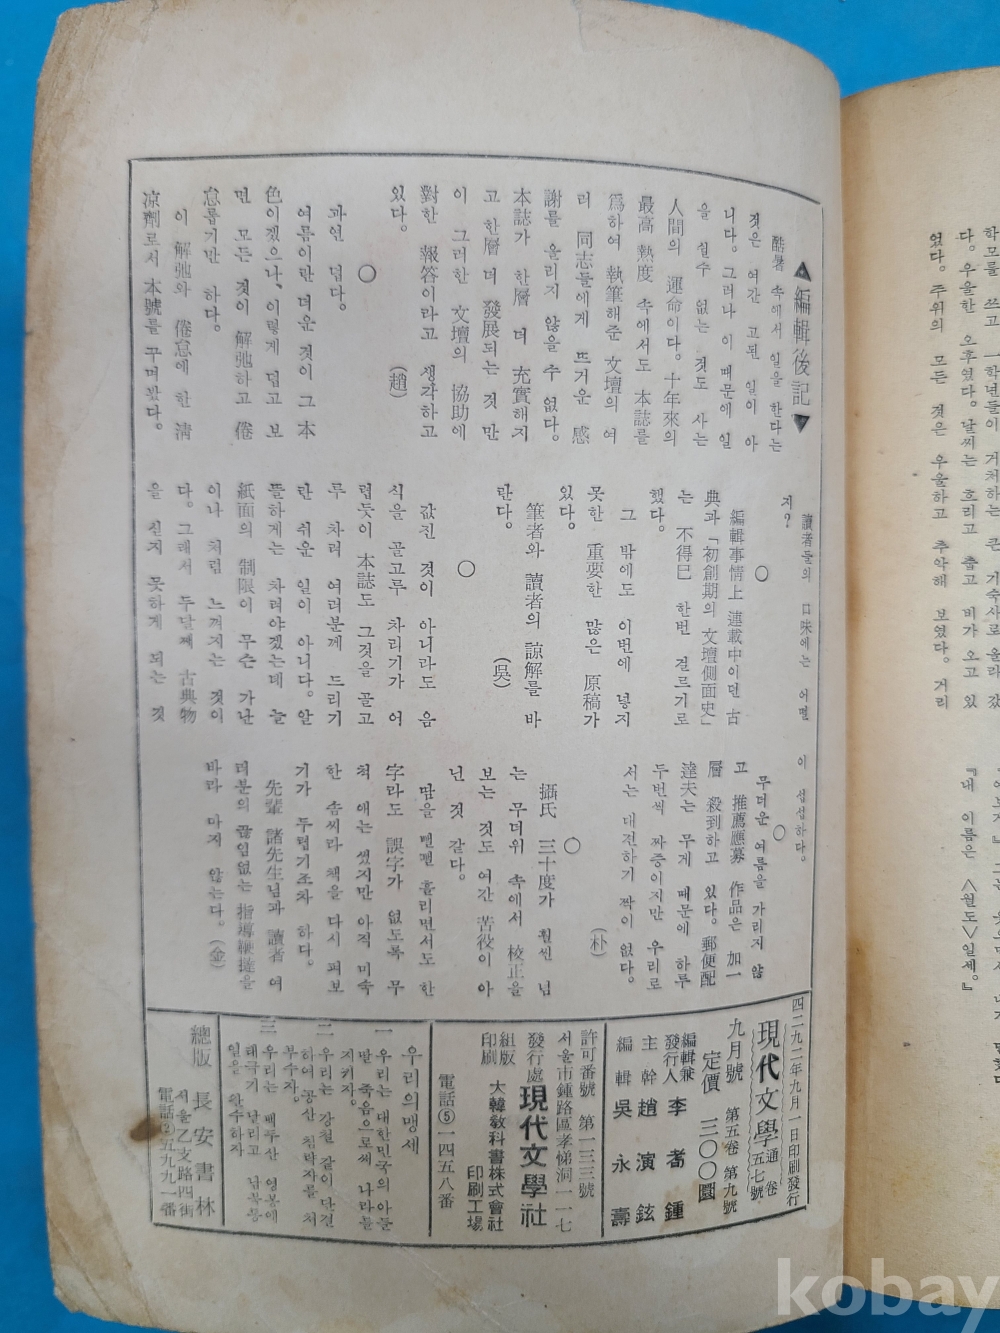 ▲編輯後記▼
酷暑 속에서 일을 한다는
것은 여간 고된 일이 아
니다. 그러나 이 때문에 일
을 쉴수 없는 것도 사는
人間의 運命이다. 十年來의
最高 熱度 속에서도 本誌를
爲하여 執筆해준 文壇의 여
러 同志들에게 뜨거운 感
謝를 올리지 않을 수 없다.
本誌가 한層 더 充實해지
고 한層 더 發展되는 것 만
이 그러한 文壇의 協助에
對한 報答이라고 생각하고
있다. (趙)
○
과연 덥다.
여름이란 더운 것이 그 本
色이겠으나、이렇게 덥고 보
면 모든 것이 解弛하고 倦
怠롭기만 하다.
이 解弛와 倦怠에 한 淸
凉劑로서 本號를 꾸며봤다.
讀者들의 口味에는 어떨
지?
○
編輯事情上 連載中이던 古
典과「初創期의 文壇側面史」
는 不得已 한번 걸르기로
했다.
그 밖에도 이번에 넣지
못한 重要한 많은 原稿가
있다.
筆者와 讀者의 諒解를 바
란다. (吳)
○
값진 것이 아니라도 음
식을 골고루 차리기가 어
렵듯이 本誌도 그것을 골고
루 차려 여러분께 드리기
란 쉬운 일이 아니다. 알
뜰하게는 차려야겠는데 늘
紙面의 制限이 무슨 가난
이나 처럼 느껴지는 것이
다. 그래서 두달째 古典物
을 싣지 못하게 되는 것
이 섭섭하다.
○
무더운 여름을 가리지 않
고 推薦應募 作品은 加一
層 殺到하고 있다. 郵便配
達夫는 무게 때문에 하루
두번씩 짜증이지만 우리로
서는 대견하기 짝이 없다.
(朴)
○
攝氏 三十度가 훨씬 넘
는 무더위 속에서 校正을
보는 것도 여간 苦役이 아
닌 것 같다.
땀을 뻘뻘 흘리면서도 한
字라도 誤字가 없도록 무
척 애는 썼지만 아직 미숙
한 솜씨라 책을 다시 펴보
기가 두렵기조차 하다.
先輩 諸先生님과 讀者 여
러분의 끊임없는 指導鞭撻을
바라 마지 않는다. (金)
四二九二年九月一日印刷發行
現代文學 通卷五七號
九月號 第五卷 第九號
定價 三〇〇圜
編輯兼發行人 李 鍾
主幹 趙演鉉
編輯 吳永壽
許可番號 第一三三號
서울市鍾路區孝悌洞一一七
發行處 現代文學社
組版印刷 大韓敎科書株式會社印刷工場
電話⑤一四五八番
우리의맹세
一 우리는 대한민국의 아들
딸 죽음으로써 나라를
지키자.
二 우리는 강철 같이 단결
하여 공산 침략자를 쳐
부수자.
三 우리는 백두산 영봉에
태극기 날리고 남북통
일을 완수하자
總版 長安書林
서울乙支路四街
電話②五九九一番
학모를 쓰고 一학년들이 거처하는 큰 기숙사로 올라 갔
다. 우울한 오후였다. 날씨는 흐리고 춥고 비가 오고 있
었다. 주위의 모든 것은 우울하고 추악해 보였다. 거리
『내 이름은 〈월도〉일세。』
kobay